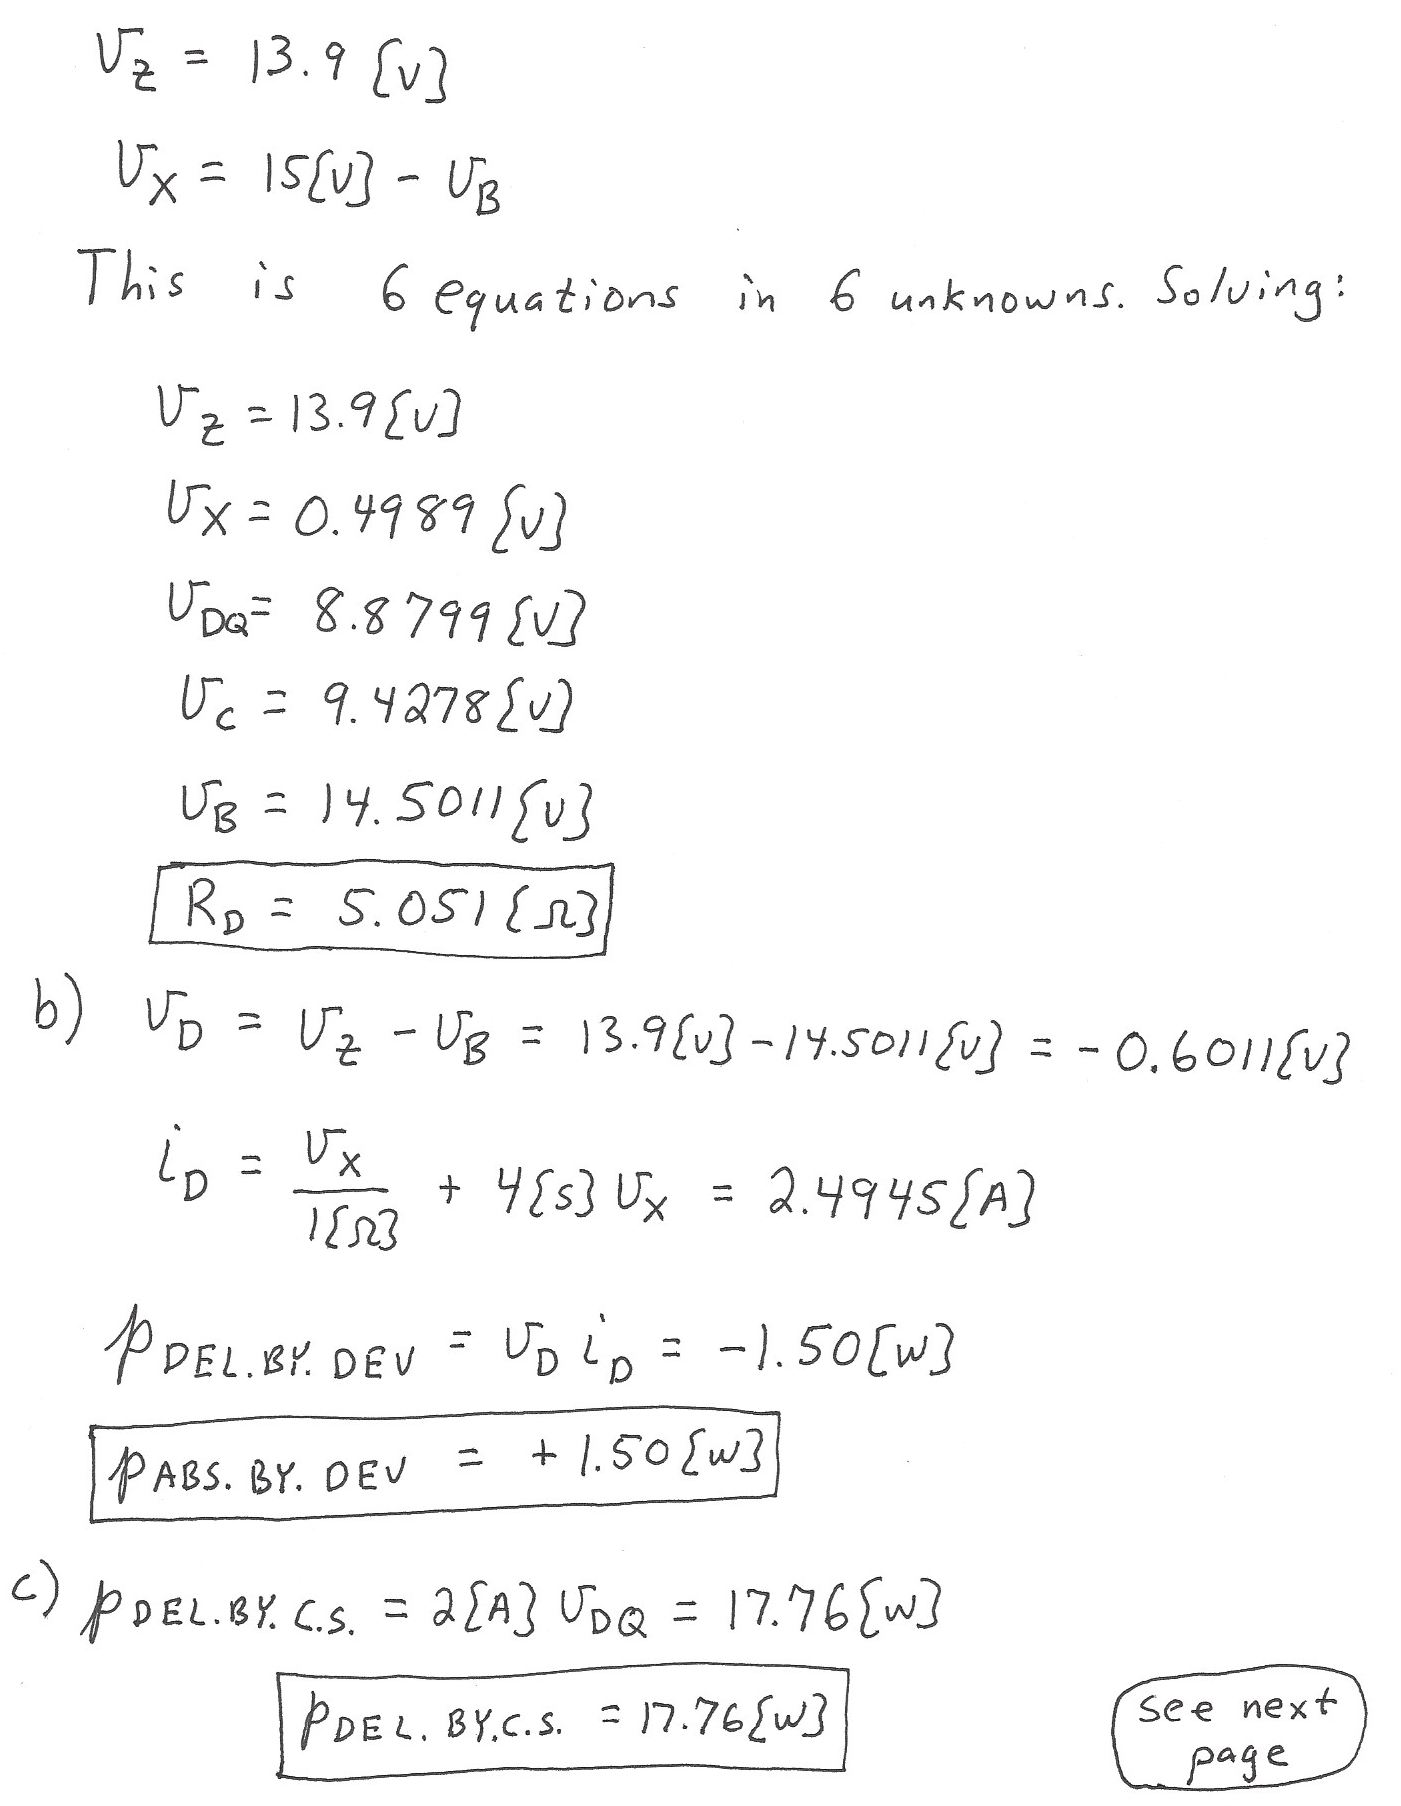 v_Z = 13.9 [V]
v_X = 15[V] - v_B
This is 6 equations in 6 unknowns. Solving:
v_Z = 13.9[V]
v_X = 0.4989 [V]
v_DQ = 8.8799 [V]
v_C = 9.4278 [V]
v_B = 14.5011 [V]
R_D = 5.051 [Ω]
b) v_D = v_Z - v_B = 13.9[V] - 14.5011[V] = - 0.6011[V]
i_D = v_X / 1[Ω] + 4[S] v_X = 2.4945[A]
p DEL. BY. DEV = v_D i_D = -1.50[W]
p ABS. BY. DEV = + 1.50 [W]
c) p DEL. BY. C.S. = 2[A] v_DQ = 17.76[W]
p DEL. BY. C.S. = 17.76[W]
see next
page